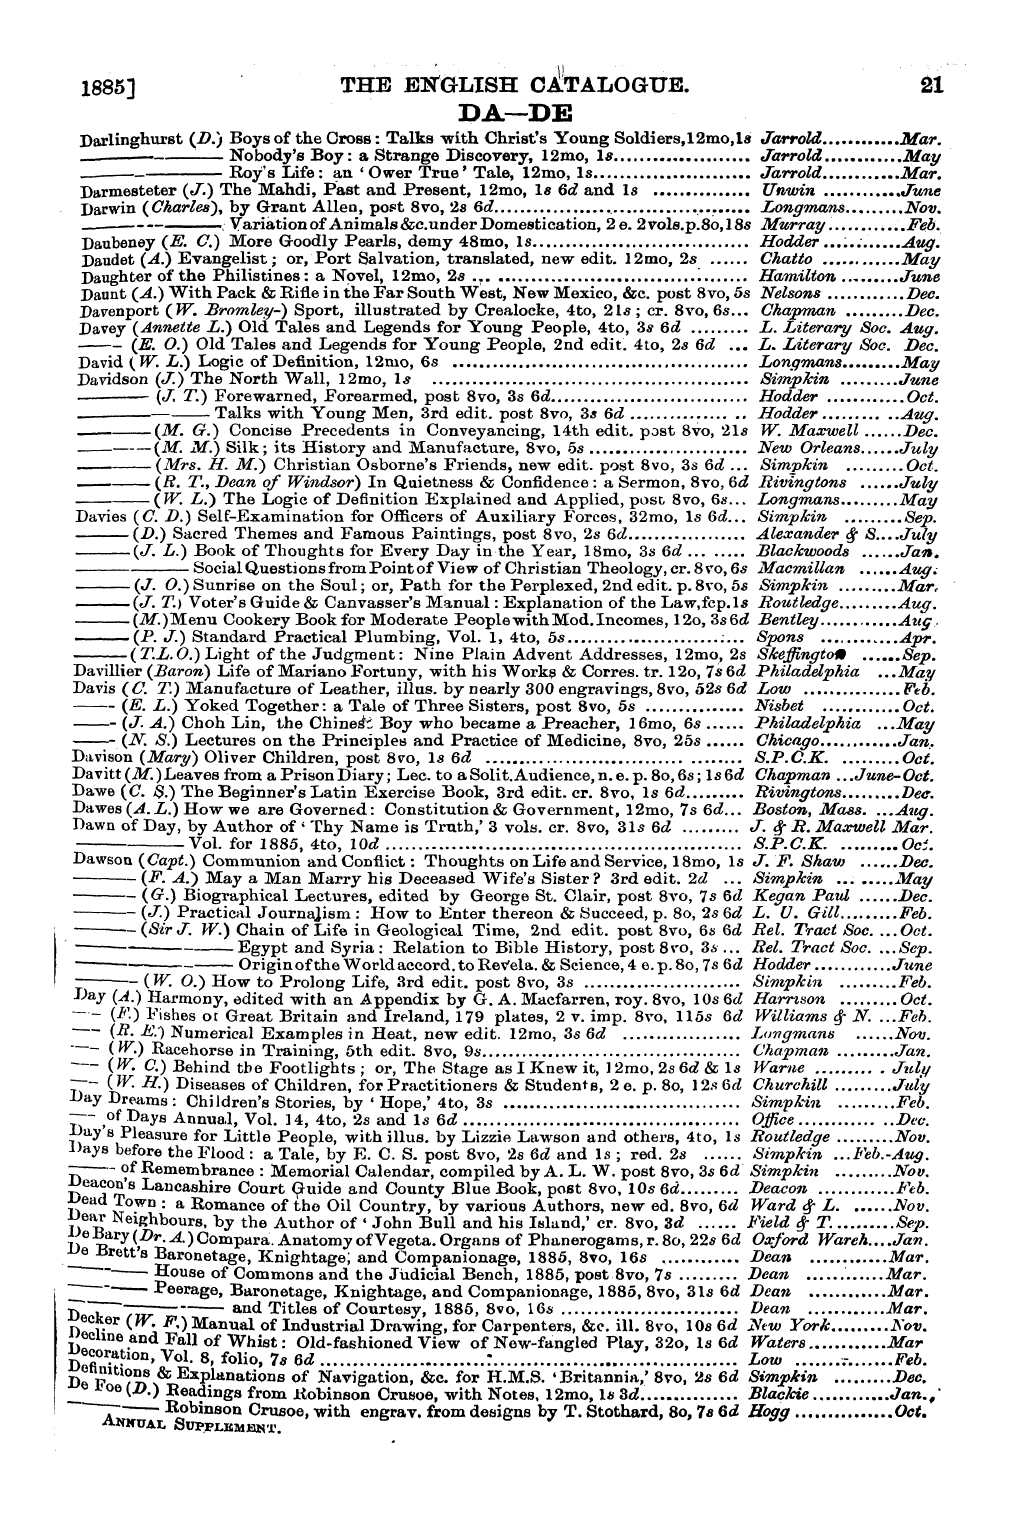 1885] THE ENGLISH CATALOGUE. 21
DA—DE
Darlinghurst (D.) Boys of the Cross: Talks with Christ's Young Soldiers, 12mo, 1s Jarrold............Mar.
———— Nobody's Boy: a Strange Discovery, 12mo, 1s..................... Jarrold............May
———— Roy's Life: an 'Ower True' Tale, 12mo, 1s........................ Jarrold............Mar.
Darmesteter (J.) The Mahdi, Past and Present, 12mo, 1s 6d and 1s ............... Unwin ............June
Darwin (Charles), by Grant Allen, post 8vo, 2s 6d....................................... Longmans.........Nov.
———— Variation of Animals &c. under Domestication, 2 e. 2 vols. p. 8o, 18s Murray ............Feb.
Daubeney (E. C.) More Goodly Pearls, demy 48mo, 1s................................. Hodder ............Aug.
Daudet (A.) Evangelist; or, Port Salvation, translated, new edit. 12mo, 2s ...... Chatto ............May
Daughter of the Philistines: a Novel, 12mo, 2s .......................................... Hamilton .........June
Daunt (A.) With Pack & Rifle in the Far South West, New Mexico, &c. post 8vo, 5s Nelsons ............Dec.
Davenport (W. Bromley-) Sport, illustrated by Crealocke, 4to, 21s; cr. 8vo, 6s... Chapman .........Dec.
Davey (Annette L.) Old Tales and Legends for Young People, 4to, 3s 6d ......... L. Literary Soc. Aug.
—— (E. O.) Old Tales and Legends for Young People, 2nd edit. 4to, 2s 6d ... L. Literary Soc. Dec.
David (W. L.) Logic of Definition, 12mo, 6s ............................................. Longmans.........May
Davidson (J.) The North Wall, 12mo, 1s ................................................ Simpkin .........June
—— (J. T.) Forewarned, Forearmed, post 8vo, 3s 6d.............................. Hodder ............Oct.
———— Talks with Young Men, 3rd edit. post 8vo, 3s 6d .................. Hodder ............Aug.
—— (M. G.) Concise Precedents in Conveyancing, 14th edit. post 8vo, 21s W. Maxwell ......Dec.
—— (M. M.) Silk; its History and Manufacture, 8vo, 5s ........................ New Orleans......July
—— (Mrs. H. M.) Christian Osborne's Friends, new edit. post 8vo, 3s 6d ... Simpkin .........Oct.
—— (R. T., Dean of Windsor) In Quietness & Confidence: a Sermon, 8vo, 6d Rivingtons ......July
—— (W. L.) The Logic of Definition Explained and Applied, post 8vo, 6s... Longmans.........May
Davies (C. D.) Self-Examination for Officers of Auxiliary Forces, 32mo, 1s 6d... Simpkin .........Sep.
—— (D.) Sacred Themes and Famous Paintings, post 8vo, 2s 6d.................. Alexander & S....July
—— (J. L.) Book of Thoughts for Every Day in the Year, 18mo, 3s 6d ......... Blackwoods ......Jan.
———— Social Questions from Point of View of Christian Theology, cr. 8vo, 6s Macmillan ......Aug.
—— (J. O.) Sunrise on the Soul; or, Path for the Perplexed, 2nd edit. p. 8vo, 5s Simpkin .........Mar.
—— (J. T.) Voter's Guide & Canvasser's Manual: Explanation of the Law, fcp. 1s Routledge.........Aug.
—— (M.) Menu Cookery Book for Moderate People with Mod. Incomes, 12o, 3s 6d Bentley ............Aug.
—— (P. J.) Standard Practical Plumbing, Vol. 1, 4to, 5s........................... Spons ............Apr.
—— (T. L. O.) Light of the Judgment: Nine Plain Advent Addresses, 12mo, 2s Skeffington ......Sep.
Davillier (Baron) Life of Mariano Fortuny, with his Works & Corres. tr. 12o, 7s 6d Philadelphia ...May
Davis (C. T.) Manufacture of Leather, illus. by nearly 300 engravings, 8vo, 52s 6d Low ...............Feb.
—— (E. L.) Yoked Together: a Tale of Three Sisters, post 8vo, 5s ............... Nisbet ............Oct.
—— (J. A.) Choh Lin, the Chinese Boy who became a Preacher, 16mo, 6s ...... Philadelphia ...May
—— (N. S.) Lectures on the Principles and Practice of Medicine, 8vo, 25s ...... Chicago............Jan.
Davison (Mary) Oliver Children, post 8vo, 1s 6d ....................................... S.P.C.K. .........Oct.
Davitt (M.) Leaves from a Prison Diary; Lec. to a Solit. Audience, n. e. p. 8o, 6s; 1s 6d Chapman ...June-Oct.
Dawe (C. S.) The Beginner's Latin Exercise Book, 3rd edit. cr. 8vo, 1s 6d......... Rivingtons.........Dec.
Dawes (A. L.) How we are Governed: Constitution & Government, 12mo, 7s 6d... Boston, Mass. ...Aug.
Dawn of Day, by Author of 'Thy Name is Truth,' 3 vols. cr. 8vo, 31s 6d ......... J. & R. Maxwell Mar.
———— Vol. for 1885, 4to, 10d ...................................................... S.P.C.K. .........Oct.
Dawson (Capt.) Communion and Conflict: Thoughts on Life and Service, 18mo, 1s J. F. Shaw ......Dec.
—— (F. A.) May a Man Marry his Deceased Wife's Sister? 3rd edit. 2d ... Simpkin .........May
—— (G.) Biographical Lectures, edited by George St. Clair, post 8vo, 7s 6d Kegan Paul ......Dec.
—— (J.) Practical Journalism: How to Enter thereon & Succeed, p. 8o, 2s 6d L. U. Gill.........Feb.
—— (Sir J. W.) Chain of Life in Geological Time, 2nd edit. post 8vo, 6s 6d Rel. Tract Soc. ...Oct.
———— Egypt and Syria: Relation to Bible History, post 8vo, 3s ... Rel. Tract Soc. ...Sep.
———— Origin of the World accord. to Revela. & Science, 4 e. p. 8o, 7s 6d Hodder ............June
—— (W. O.) How to Prolong Life, 3rd edit. post 8vo, 3s ........................ Simpkin .........Feb.
Day (A.) Harmony, edited with an Appendix by G. A. Macfarren, roy. 8vo, 10s 6d Harrison .........Oct.
—— (F.) Fishes of Great Britain and Ireland, 179 plates, 2 v. imp. 8vo, 115s 6d Williams & N. ...Feb.
—— (R. E.) Numerical Examples in Heat, new edit. 12mo, 3s 6d .................. Longmans ......Nov.
—— (W.) Racehorse in Training, 5th edit. 8vo, 9s....................................... Chapman .........Jan.
—— (W. C.) Behind the Footlights; or, The Stage as I Knew it, 12mo, 2s 6d & 1s Warne ..........July
—— (W. H.) Diseases of Children, for Practitioners & Students, 2 e. p. 8o, 12s 6d Churchill .........July
Day Dreams: Children's Stories, by 'Hope,' 4to, 3s .................................... Simpkin .........Feb.
—— of Days Annual, Vol. 14, 4to, 2s and 1s 6d .......................................... Office ...............Dec.
Day's Pleasure for Little People, with illus. by Lizzie Lawson and others, 4to, 1s Routledge .........Nov.
Days before the Flood: a Tale, by E. C. S. post 8vo, 2s 6d and 1s; red. 2s ...... Simpkin ...Feb.-Aug.
—— of Remembrance: Memorial Calendar, compiled by A. L. W. post 8vo, 3s 6d Simpkin .........Nov.
Deacon's Lancashire Court Guide and County Blue Book, post 8vo, 10s 6d......... Deacon ............Feb.
Dead Town: a Romance of the Oil Country, by various Authors, new ed. 8vo, 6d Ward & L. ......Nov.
Dear Neighbours, by the Author of 'John Bull and his Island,' cr. 8vo, 3d ...... Field & T..........Sep.
De Bary (Dr. A.) Compara. Anatomy of Vegeta. Organs of Phanerogams, r. 8o, 22s 6d Oxford Wareh....Jan.
De Brett's Baronetage, Knightage, and Companionage, 1885, 8vo, 16s ............ Dean ............Mar.
———— House of Commons and the Judicial Bench, 1885, post 8vo, 7s ......... Dean ............Mar.
———— Peerage, Baronetage, Knightage, and Companionage, 1885, 8vo, 31s 6d Dean ............Mar.
———— and Titles of Courtesy, 1885, 8vo, 16s ........................... Dean ............Mar.
Decker (W. F.) Manual of Industrial Drawing, for Carpenters, &c. ill. 8vo, 10s 6d New York.........Nov.
Decline and Fall of Whist: Old-fashioned View of New-fangled Play, 32o, 1s 6d Waters ............Mar
Decoration, Vol. 8, folio, 7s 6d ............................................................... Low ...............Feb.
Definitions & Explanations of Navigation, &c. for H.M.S. 'Britannia,' 8vo, 2s 6d Simpkin .........Dec.
De Foe (D.) Readings from Robinson Crusoe, with Notes, 12mo, 1s 3d............... Blackie ............Jan.
———— Robinson Crusoe, with engrav. from designs by T. Stothard, 8o, 7s 6d Hogg ...............Oct.
ANNUAL SUPPLEMENT.